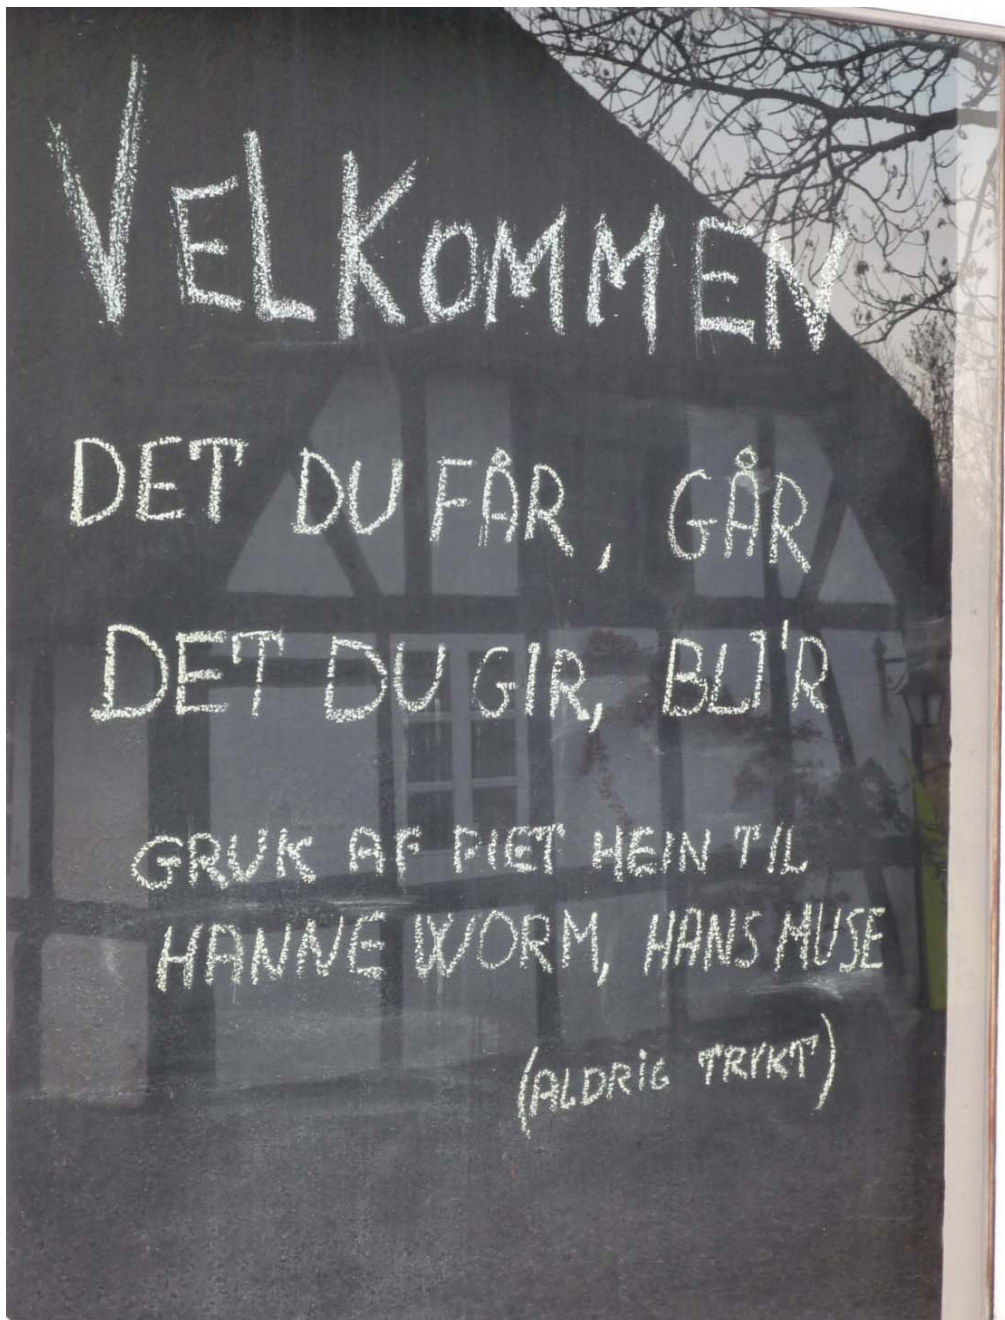 VELKOMMEN
DET DU FÅR, GÅR
DET DU GIR, BLI'R
GRUK AF PIET HEIN TIL
HANNE WORM, HANS MUSE
(ALDRIG TRYKT)